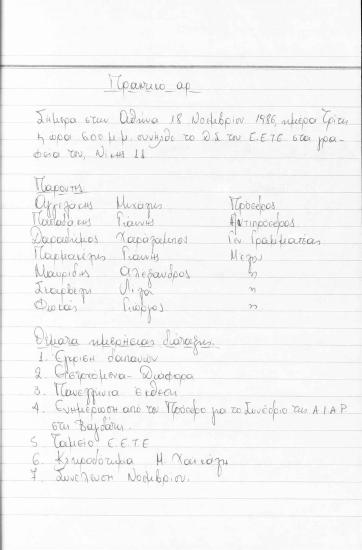 Πρακτικο αρ
Σήμερα στην Αθήνα 18 Νοεμβρίου 1986, ημέρα Τρίτη
η ώρα 6:00 μ.μ. συνήλθε το ΔΣ του Ε.Ε.Τ.Ε στα γρα-
φεία του, Νίκης 11
Παροντες
Μιχάλης Πρόεδρος
Παπαδάκης Γιάννης Αντιπρόεδρος
Χαράλαμπος Γεν Γραμματέας
Παρμακέλης Γιάννης Μέλος
Μαυρίδης Αλέξανδρος "
Λιζα "
Φωκάς Γιώργος "
Θέματα ημερήσιας διάταξης.
1. Εγκριση δαπανών
2. Εισερχόμενα - Διάφορα
3. Πανελληνια Εκθεση
4. Ενημέρωση απο τον Πρόεδρο για το Συνέδριο της A.I.A.P.
στη Βαγδάτη.
5. Ταμείο Ε.Ε.Τ.Ε
6. Κληροδότημα Η.
7. Συνέλευση Νοεμβριου.